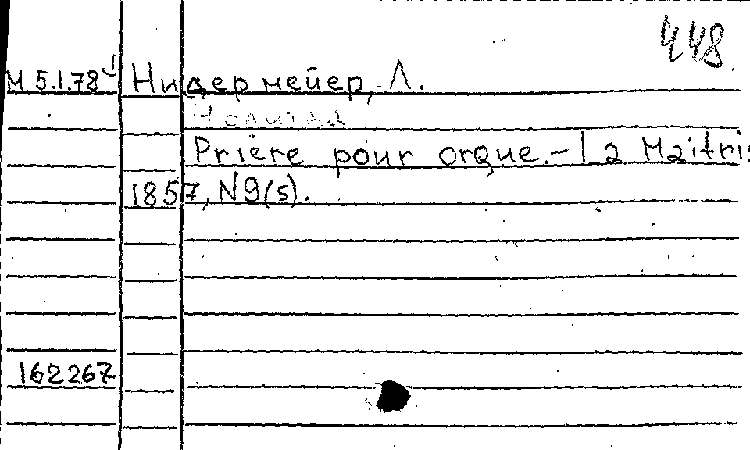 448
М 5.1.78 Нидермейер, Л.
Prière pour orque.- La Maitris
1857, N9(s).
162267